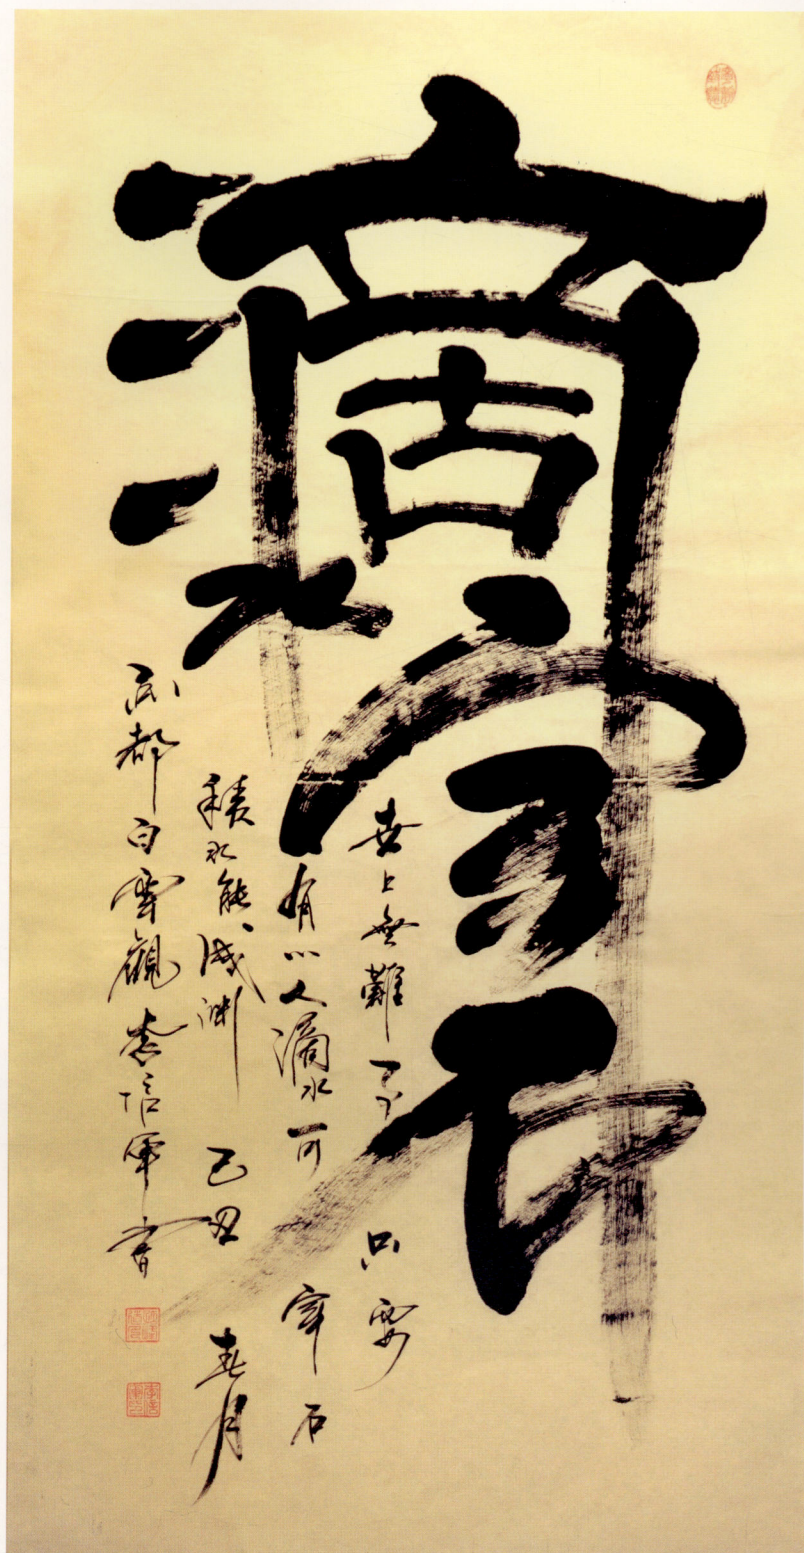 滴水穿石
世上無難事只要
有心人滴水可穿石
積水能成渊己丑春月
都白雲觀李信軍書